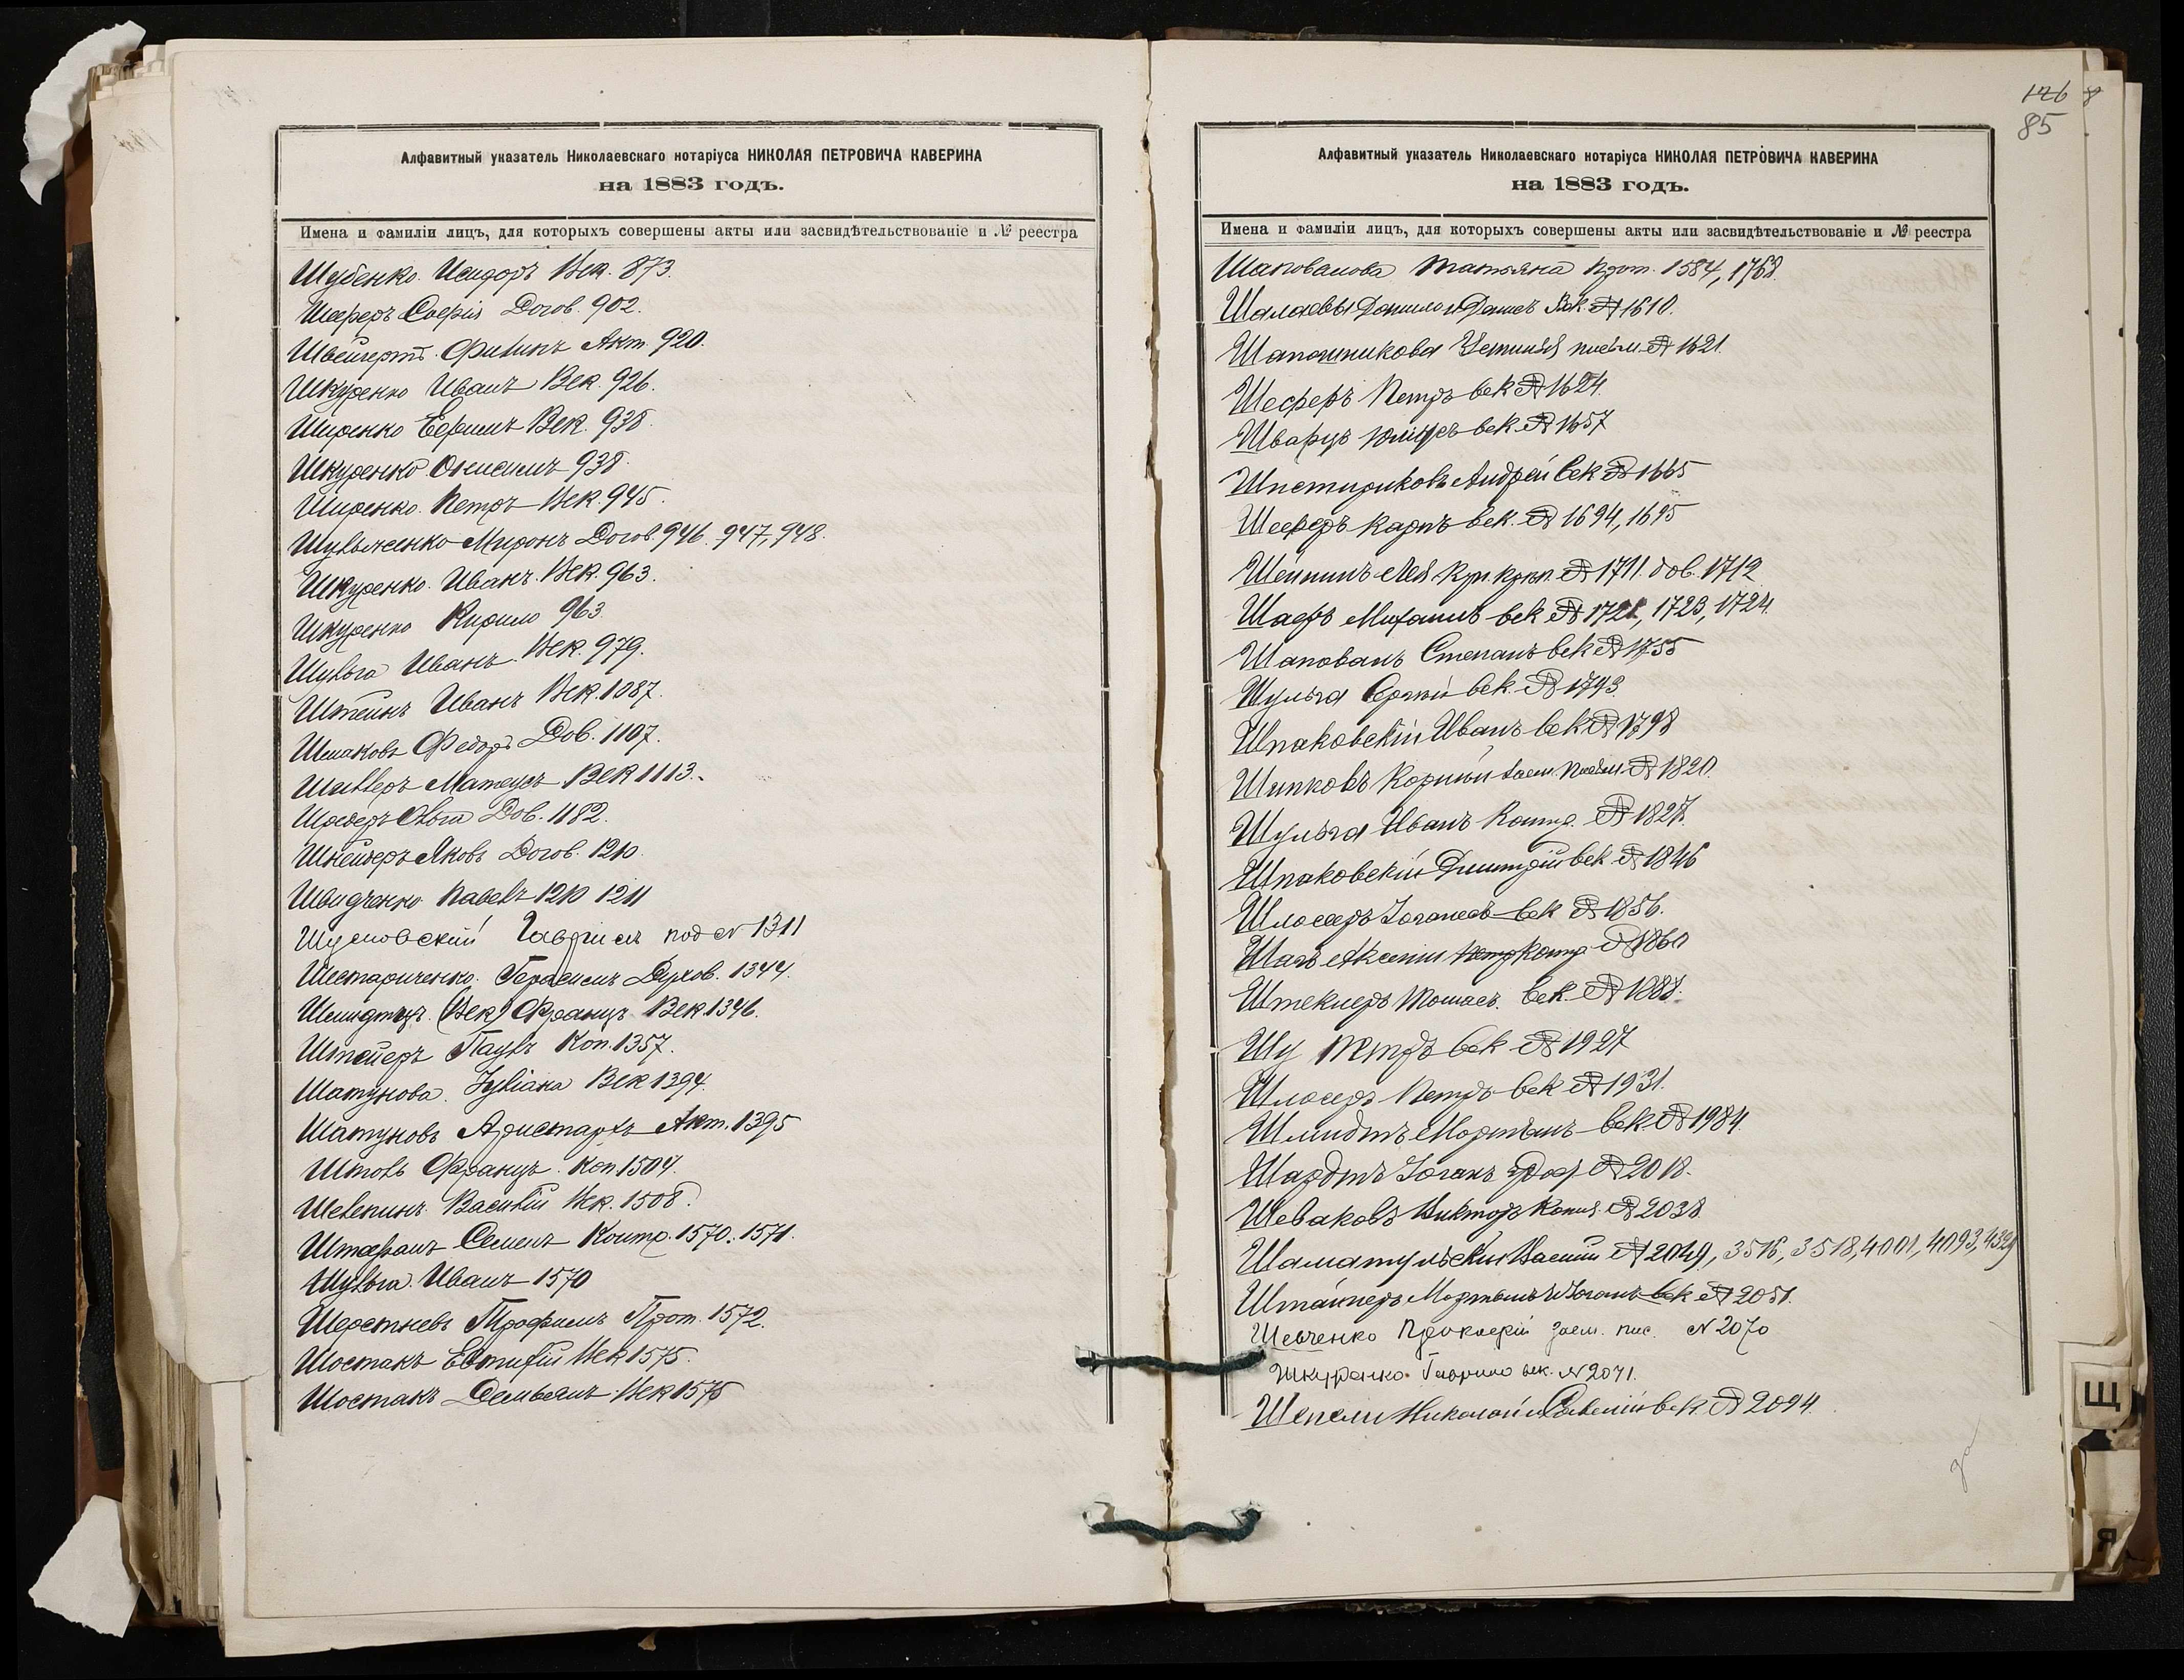 Алфавитный указатель Николаевскаго нотаріуса НИКОЛАЯ ПЕТРОВИЧА КАВЕРИНА
на 1883 годъ.
Имена и фамиліи лицъ, для которыхъ совершены акты или засвидѣтельствованіе и № реестра
Шубенко Исидоръ Век. 873.
Шеферъ Софія Догов. 902.
Швейгертъ Филипъ Акт. 920.
Шкуренко Иванъ Век. 926.
Ширенко Ефимъ Век. 938.
Шкуренко Онисимъ 938.
Ширенко Петръ Век. 945.
Шульженко Миронъ Догов. 946. 947, 948.
Шкуренко Иванъ Век. 963.
Шкуренко Кирило 963.
Шульга Иванъ Век. 979.
Штейнъ Иванъ Век. 1087.
Шмаковъ Федоръ Дов. 1107.
Шиллеръ Матеусъ Век 1113.
Шредеръ Ольга Дов. 1182.
Шнейдеръ Яковъ Догов. 1210.
Швидченко Павелъ 1210 1211
Гавріилъ под № 1311
Шестариченко Герасимъ Духов. 1344.
Шмидтъ (Век) Францъ Век. 1346.
Штейеръ Паулъ Коп. 1357.
Шатунова Іуліана Век 1394.
Шатуновъ Аристархъ Акт. 1395
Штоль Францъ Коп. 1504.
Шелепинъ Василій Век. 1508.
Штефанъ Семенъ Контр. 1570. 1571.
Шульга Иванъ 1570
Шерстневъ Трофимъ Прот. 1572.
Шостакъ Евтифій Век 1575.
Шостакъ Демьянъ Век 1575
126 8
85
Алфавитный указатель Николаевскаго нотаріуса НИКОЛАЯ ПЕТРОВИЧА КАВЕРИНА
на 1883 годъ.
Имена и фамиліи лицъ, для которыхъ совершены акты или засвидѣтельствованіе и № реестра
Шаповалова Татьяна прот. 1584, 1768.
Шалаевы Данило и Век № 1610.
Шапошникова Устинья письм. № 1621.
Шеферъ Петръ век № 1624.
Шварцъ Юліусъ век. № 1657
Шпетириковъ Андрей век № 1665
Шеферъ Карпъ век. № 1694, 1695
Шейнинъ Лея Куп. крѣп. № 1711. дов. 1712
Шафъ Михаилъ век № 1721, 1723, 1724.
Шаповалъ Степанъ век № 1755
Шульга Сергѣй век. № 1793.
Шпаковскій Иванъ век № 1798
Шипковъ Корнѣй заем. письм. № 1820.
Шульга Иванъ Контр. № 1827.
Шпаковскій Дмитрій век № 1846
Шлосеръ Іоганесъ век № 1856.
Шагъ Аксенія Контр. № 1860
Штеклеръ Томасъ век. № 1888.
Шу Петръ век № 1927
Шлосеръ Петръ век № 1931.
Шмидтъ Мартынъ век № 1984.
Шардтъ Іоганъ № 2018.
Шеваковъ Викторъ Копія № 2038.
Шаматульскій Василій № 2049, 3516, 3518, 4001, 4093, 4329
Штайнеръ Мартынъ и Іоганъ век № 2051.
Шевченко Прокофій заем. пис. № 2070
Шкуренко Гаврило век. № 2071.
Шепели Николай и Савелій век. № 2094.
Щ
Я